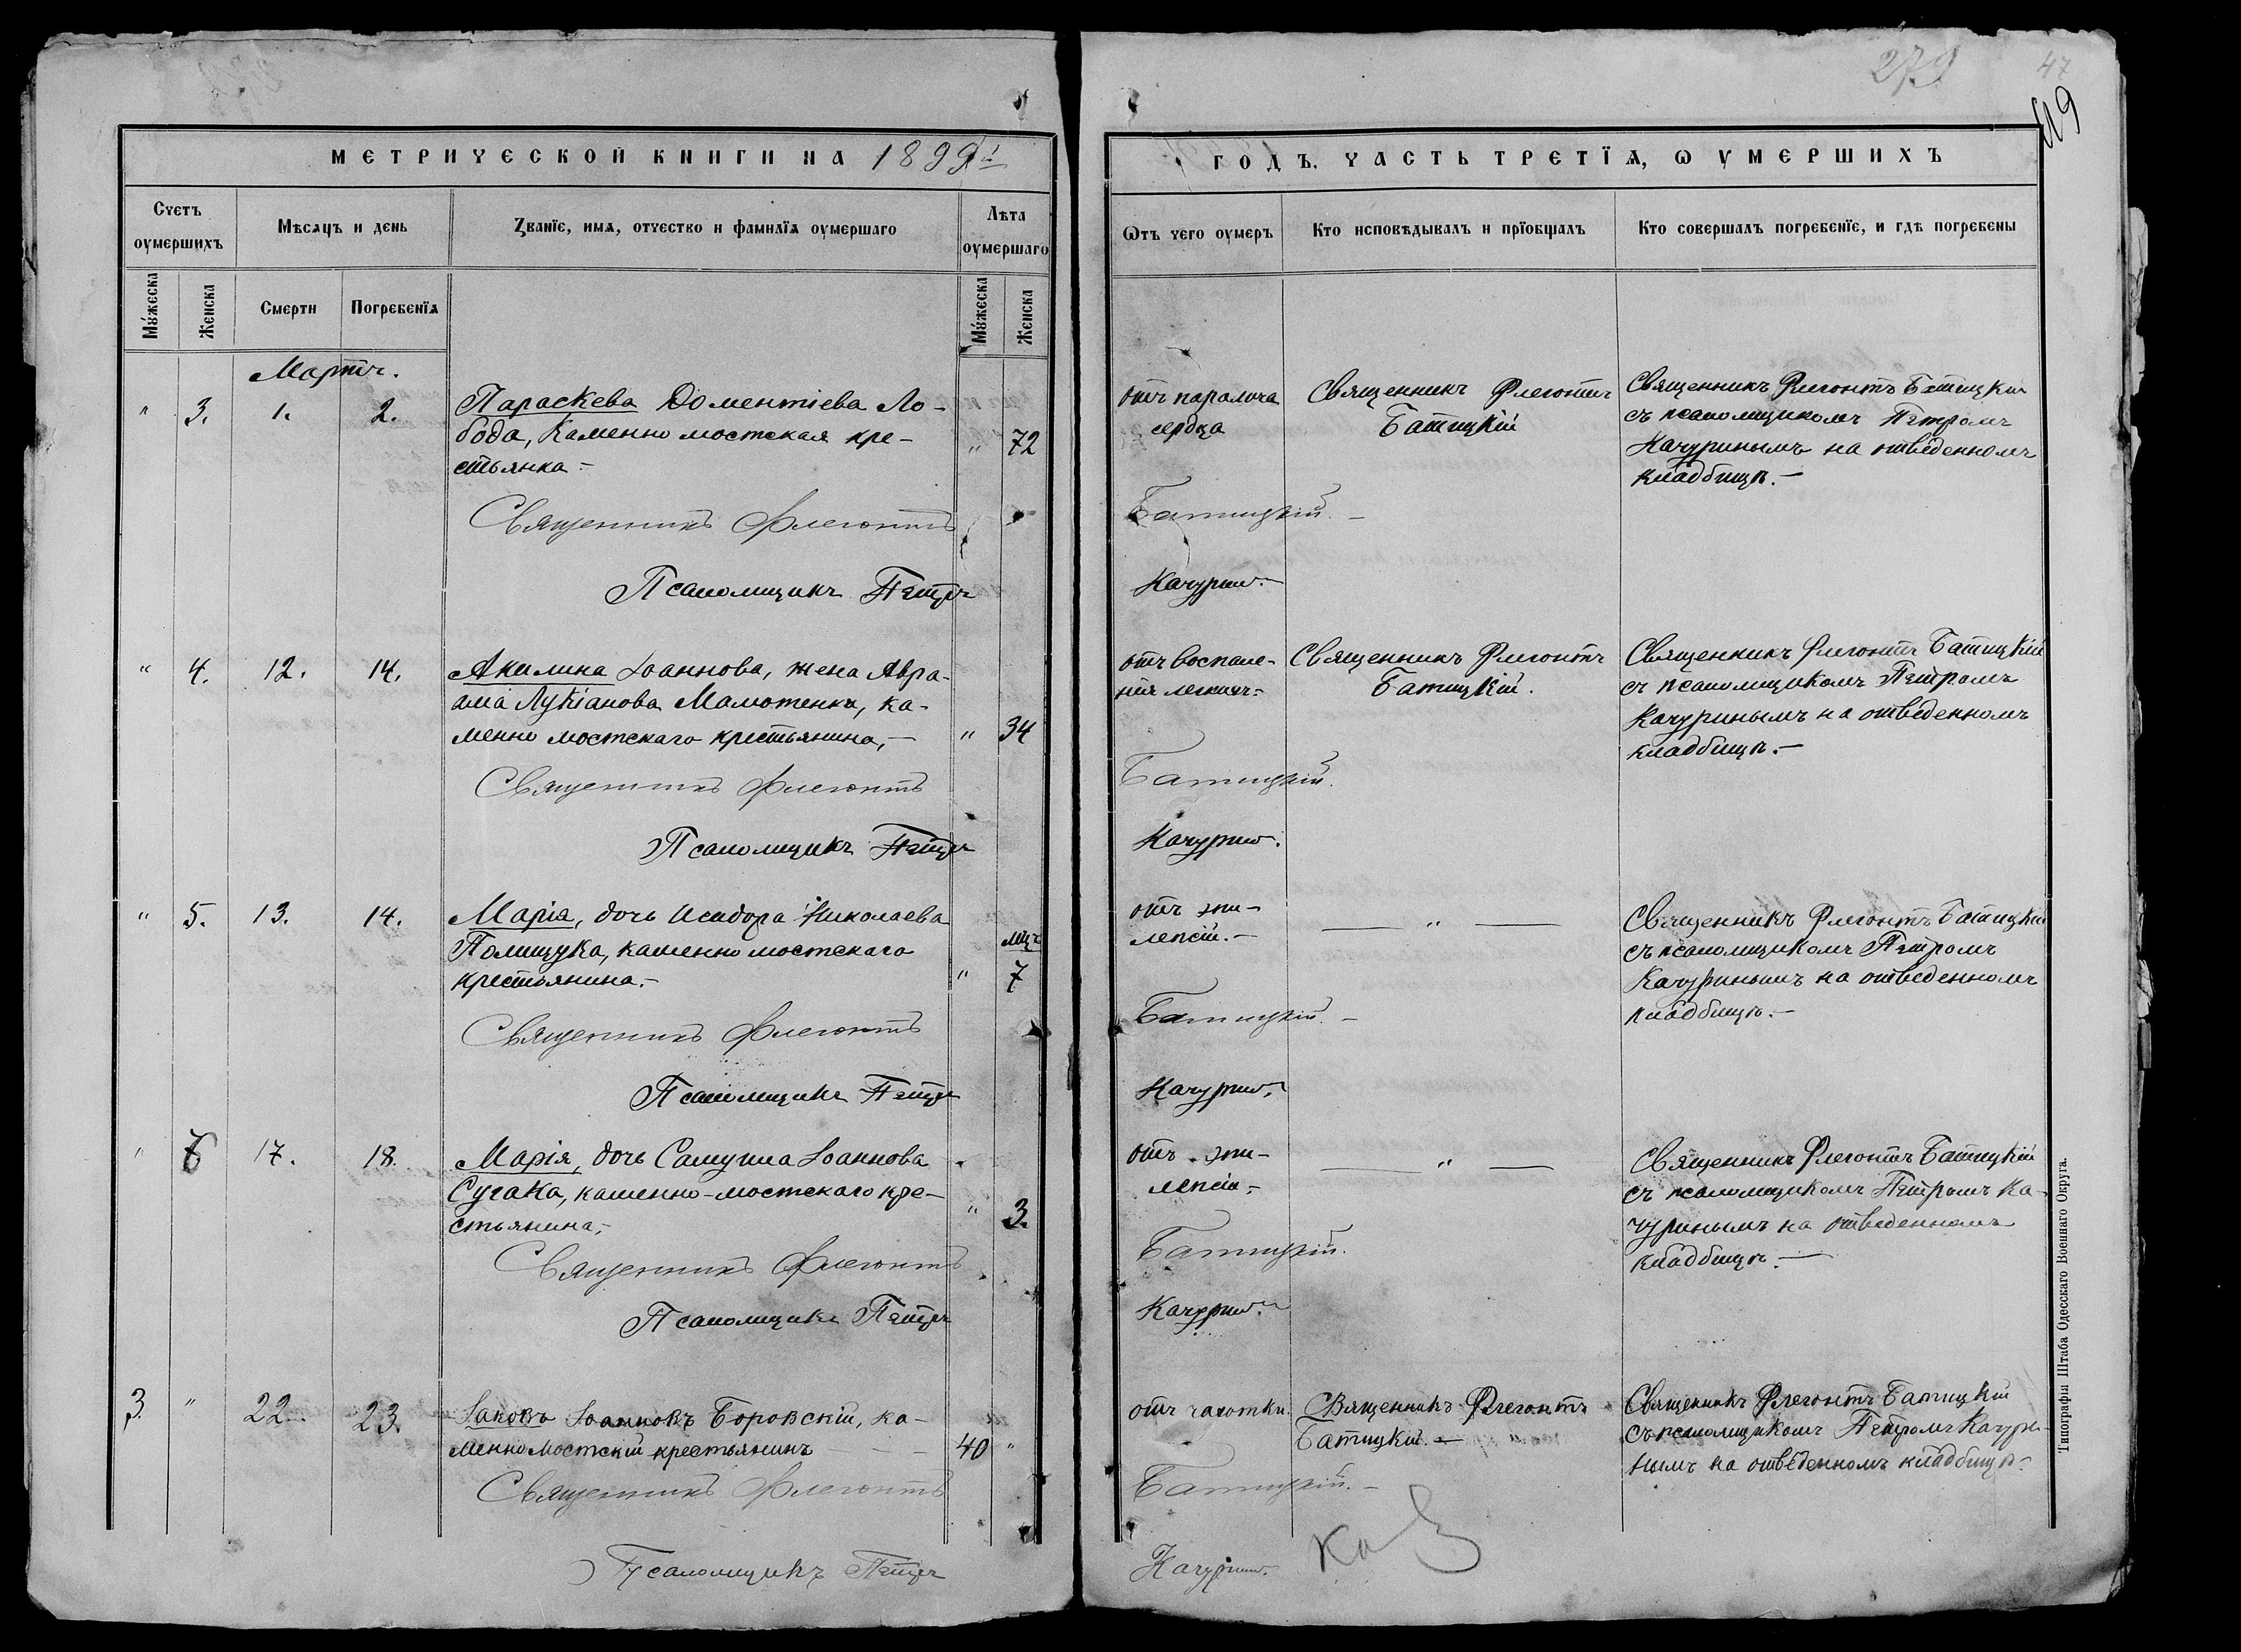 279
47
119
МЕТРИЧЕСКОЙ КНИГИ НА 1899й
ГОДЪ. ЧАСТЬ ТРЕТЇѦ, Ѡ УМЕРШИХЪ
Счетъ оумершихъ
Мѣсяцъ и день
Званїе, имя, отчество и фамилїя оумершаго
Лѣта оумершаго
Ѡтъ чего оумеръ
Кто исповѣдывалъ и прїобщалъ
Кто совершалъ погребенїе, и гдѣ погребены
Мужеска
Женска
Смерти
Погребенїя
Мужеска
Женска
Мартъ.
" 3. 1. 2.
Параскева Доментіева Ло-
бода, Каменно мостская кре-
стьянка.-
" 72
отъ паралича
сердца
Священникъ Флегонтъ
Батицкій
Священникъ Флегонтъ Батицкій
съ псаломщикомъ Петромъ
Качуринымъ на отведенномъ
кладбищѣ.-
Священникъ Флегонтъ Батицкій.-
Псаломщикъ Петръ Качуринъ.-
" 4. 12. 14.
Акилина Іоаннова, жена Авра-
ама Лукіанова Малютенка, ка-
менно мостскаго крестьянина,-
" 34
отъ воспале-
нія легкихъ-
Священникъ Флегонтъ
Батицкій.
Священникъ Флегонтъ Батицкій
съ псаломщикомъ Петромъ
Качуринымъ на отведенномъ
кладбищѣ.-
Священникъ Флегонтъ Батицкій.
Псаломщикъ Петръ Качуринъ.
" 5. 13. 14.
Марія, дочь Исидора Николаева
Полищука, каменно мостскаго
крестьянина.-
" мц. 7
отъ эпи-
лепсіи.-
— " —
Священникъ Флегонтъ Батицкій
съ псаломщикомъ Петромъ
Качуринымъ на отведенномъ
кладбищѣ.-
Священникъ Флегонтъ Батицкій.-
Псаломщикъ Петръ Качуринъ.
" 6 17. 18.
Марія, дочь Самуила Іоаннова
Сугака, каменно-мостскаго кре-
стьянина,-
" 3.
отъ эпи-
лепсіи-
— " —
Священникъ Флегонтъ Батицкій
съ псаломщикомъ Петромъ Ка-
чуринымъ на отведенномъ
кладбищѣ.-
Священникъ Флегонтъ Батицкій.
Псаломщикъ Петръ Качуринъ.
3. " 22. 23.
Іаковъ Іоанновъ Боровскій, ка-
менно мостскій крестьянинъ
40 "
отъ чахотки.
Священникъ Флегонтъ
Батицкій.-
Священникъ Флегонтъ Батицкій
съ псаломщикомъ Петромъ Качури-
нымъ на отведенномъ кладбищѣ.-
Священникъ Флегонтъ Батицкій.-
Псаломщикъ Петръ Качуринъ.
Типографія Штаба Одесскаго Военнаго Округа.